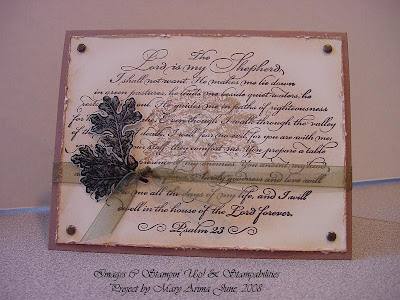 The
Lord is my Shepherd
I shall not want. He makes me lie down
in green pastures, he leads me beside quiet waters, he
soul. He guides me in paths of righteousness
for Even though I walk through the valley
of the death, I will fear no evil, for you are with me;
staff they comfort me. You prepare a table
presence of my enemies. You anoint my
Surely goodness and love will
me all the days of my life, and I will
dwell in the house of the Lord forever.
Psalm 23
Images © Stampin' Up! & Stampabilities
Project by Mary June, 2008